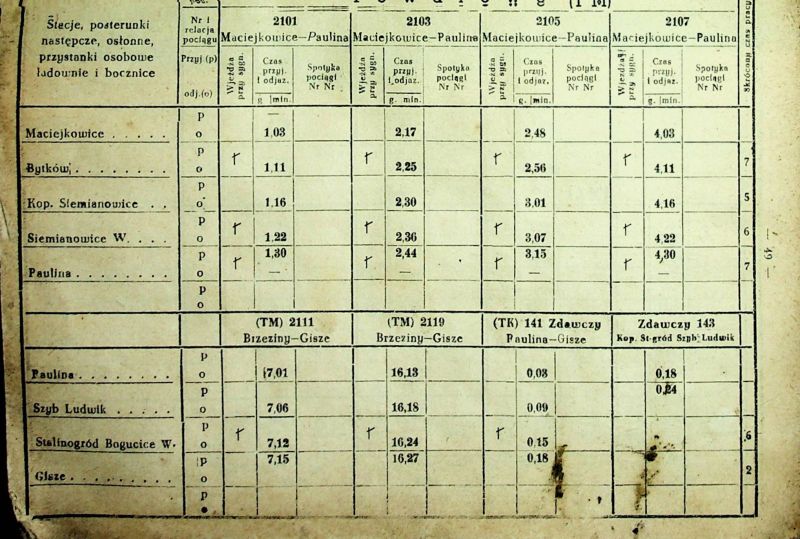 Stacje, posterunki
następcze, osłonne,
przystanki osobowe
ładownie i bocznice
Nr i
relacja
pociągu
Przyj (p)
odj.(o)
2101
Maciejkowice—Paulina
2103
Maciejkowice—Paulina
2105
Maciejkowice—Paulina
2107
Maciejkowice—Paulina
Wjeżdża
przy sygn.
Czas
przyj.
i odjaz.
g. min.
Spotyka
pociągi
Nr Nr
Wjeżdża
przy sygn.
Czas
przyj.
i odjaz.
g. min.
Spotyka
pociągi
Nr Nr
Wjeżdża
przy sygn.
Czas
przyj.
i odjaz.
g. min.
Spotyka
pociągi
Nr Nr
Wjeżdża
przy sygn.
Czas
przyj.
i odjaz.
g. min.
Spotyka
pociągi
Nr Nr
Skrócony czas pracy
p —
Maciejkowice . . . . . o 1,03 2,17 2,48 4,03
p
Bytków, . . . . . . . . o 1,11 2,25 2,56 4,11 7
p
Kop. Siemianowice . . o 1,16 2,30 3,01 4,16 5
p
Siemianowice W. . . . o 1,22 2,36 3,07 4,22 6
p 1,30 2,44 3,15 4,30
Paulina . . . . . . . . o — — — — 7
p
o
— 49 —
(TM) 2111
Brzeziny—Gisze
(TM) 2119
Brzeziny—Gisze
(TK) 141 Zdawczy
Paulina—Gisze
Zdawczy 143
Kop. St-gród Szyb Ludwik
p
Paulina . . . . . . . . o 7,01 16,13 0,03 0,18
p 0,24
Szyb Ludwik . . . . . o 7,06 16,18 0,09
p
Stalinogród Bogucice W. o 7,12 16,24 0,15 6
p 7,15 16,27 0,18
Gisze . . . . . . . . . o 2
p